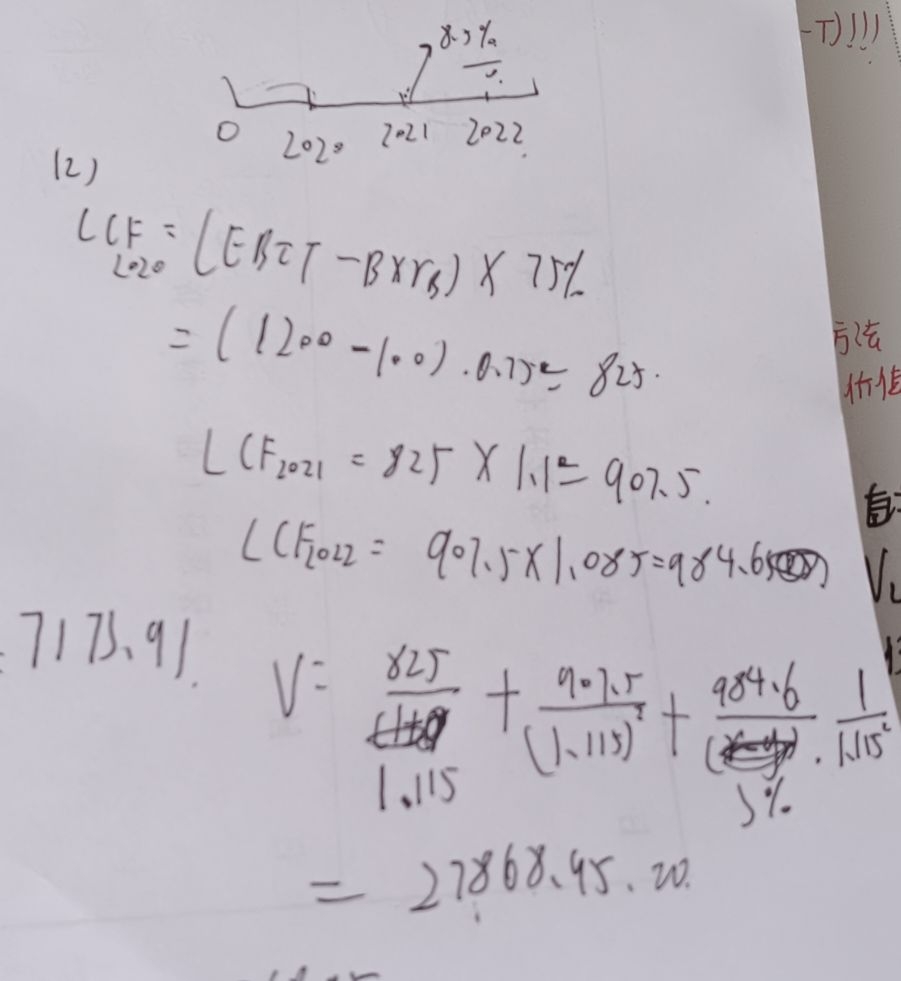 8.5%
0 2020 2021 2022
(2)
LCF2020 = (EBIT - B×rB) × 75%
= (1200 - 100) . 0.75 = 825.
LCF2021 = 825 × 1.1 = 907.5.
LCF2022 = 907.5 × 1.085 = 984.6
= 7173.91.
V = 825/1.115 + 907.5/(1.115)² + 984.6/3% . 1/1.115²
= 27868.95.
-T)!!!
方法
价值
V